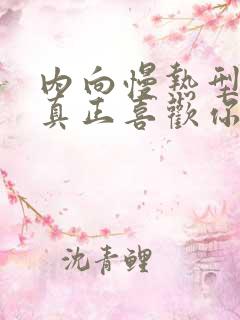 内向慢熱型
真正喜歡你
沈青鲤